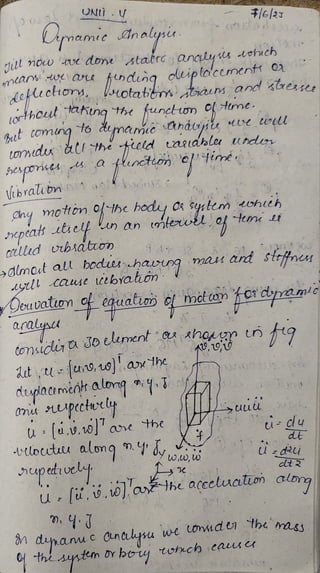 UNIT - V 7/6/23
Dynamic Analysis
Till now we done static analysis which
means we are finding displacements or
deflections, rotations, strains and stresses
without taking the function of time.
But coming to dynamic analysis we will
consider all the field variables under
responses is a function of time.
Vibration
Any motion of the body or system which
repeats itself in an interval of time is
called vibration
→ Almost all bodies having mass and stiffness
will cause vibration
* Derivation of equation of motion for dynamic
analysis
consider a 3D element as shown in fig
Let, u = [u v, w]ᵀ are the
displacements along x, y, z
axis respectively
u̇ = [u̇, v̇, ẇ]ᵀ are the
velocities along x, y, z
respectively
ü = [ü, v̈, ẅ]ᵀ are the acceleration along
x, y, z
v, v̇, v̈
u u̇ ü
w, ẇ, ẅ
y
x
z
u̇ = du/dt
ü = d²u/dt²
In dynamic analysis we consider the mass
of the system or body which causes